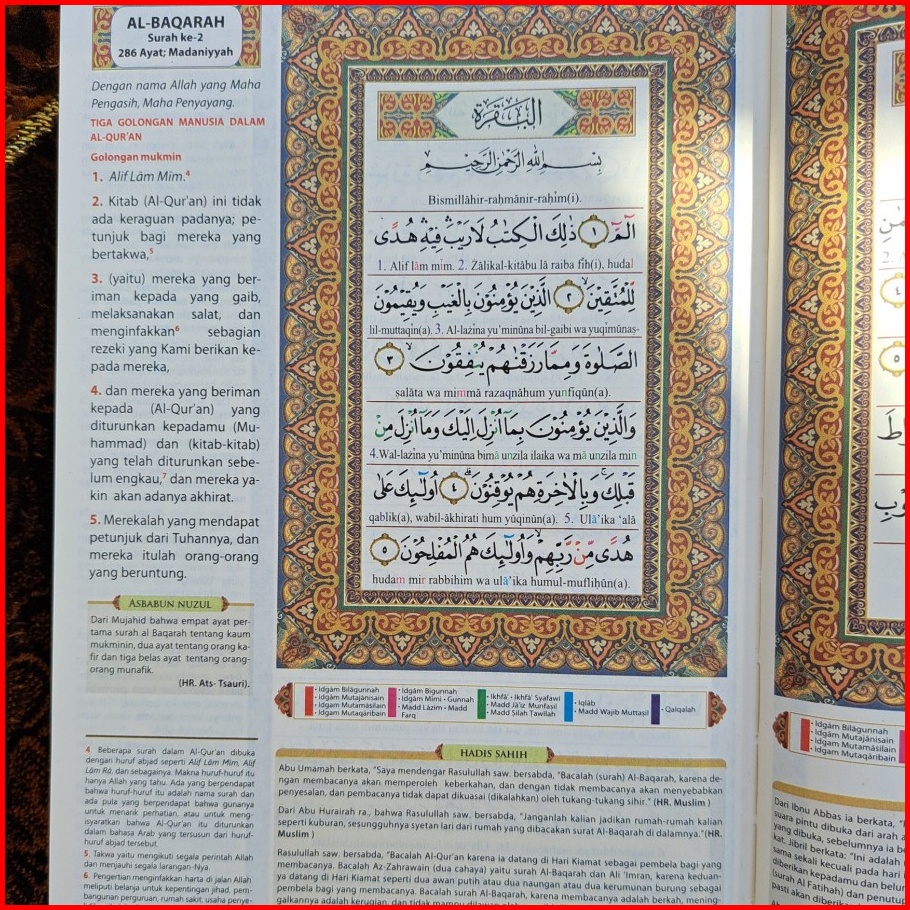 AL-BAQARAH
Surah ke-2
286 Ayat; Madaniyyah
Dengan nama Allah yang Maha
Pengasih, Maha Penyayang.
TIGA GOLONGAN MANUSIA DALAM
AL-QUR'AN
Golongan mukmin
1. Alif Lâm Mîm.⁴
2. Kitab (Al-Qur'an) ini tidak
ada keraguan padanya; pe-
tunjuk bagi mereka yang
bertakwa,⁵
3. (yaitu) mereka yang ber-
iman kepada yang gaib,
melaksanakan salat, dan
menginfakkan⁶ sebagian
rezeki yang Kami berikan ke-
pada mereka,
4. dan mereka yang beriman
kepada (Al-Qur'an) yang
diturunkan kepadamu (Mu-
hammad) dan (kitab-kitab)
yang telah diturunkan sebe-
lum engkau,⁷ dan mereka ya-
kin akan adanya akhirat.
5. Merekalah yang mendapat
petunjuk dari Tuhannya, dan
mereka itulah orang-orang
yang beruntung.
ASBABUN NUZUL
Dari Mujahid bahwa empat ayat per-
tama surah al Baqarah tentang kaum
mukminin, dua ayat tentang orang ka-
fir dan tiga belas ayat tentang orang-
orang munafik.
(HR. Ats- Tsauri).
4. Beberapa surah dalam Al-Qur'an dibuka
dengan huruf abjad seperti Alif Lâm Mîm, Alif
Lâm Râ, dan sebagainya. Makna huruf-huruf itu
hanya Allah yang tahu. Ada yang berpendapat
bahwa huruf-huruf itu adalah nama surah dan
ada pula yang berpendapat bahwa gunanya
untuk menarik perhatian, atau untuk meng-
isyaratkan bahwa Al-Qur'an itu diturunkan
dalam bahasa Arab yang tersusun dari huruf-
huruf abjad tersebut.
5. Takwa yaitu mengikuti segala perintah Allah
dan menjauhi segala larangan-Nya.
6. Pengertian menginfakkan harta di jalan Allah
meliputi belanja untuk kepentingan jihad, pem-
bangunan perguruan, rumah sakit, usaha penye-
البقرة
بِسْمِ اللهِ الرَّحْمٰنِ الرَّحِيْمِ
Bismillâhir-raḥmânir-raḥîm(i).
الۤمّۤ ۝١ ذٰلِكَ الْكِتٰبُ لَا رَيْبَۛ فِيْهِۛ هُدًى
1. Alif lâm mîm. 2. Żâlikal-kitâbu lâ raiba fîh(i), hudal
لِّلْمُتَّقِيْنَۙ ۝٢ الَّذِيْنَ يُؤْمِنُوْنَ بِالْغَيْبِ وَيُقِيْمُوْنَ
lil-muttaqîn(a). 3. Al-lażîna yu'minûna bil-gaibi wa yuqîmûnaṣ-
الصَّلٰوةَ وَمِمَّا رَزَقْنٰهُمْ يُنْفِقُوْنَۙ ۝٣
ṣalâta wa mimmâ razaqnâhum yunfiqûn(a).
وَالَّذِيْنَ يُؤْمِنُوْنَ بِمَآ اُنْزِلَ اِلَيْكَ وَمَآ اُنْزِلَ مِنْ
4.Wal-lażîna yu'minûna bimâ unzila ilaika wa mâ unzila min
قَبْلِكَۚ وَبِالْاٰخِرَةِ هُمْ يُوْقِنُوْنَۗ ۝٤ اُولٰۤىِٕكَ عَلٰى
qablik(a), wabil-âkhirati hum yûqinûn(a). 5. Ulâ'ika 'alâ
هُدًى مِّنْ رَّبِّهِمْۙ وَاُولٰۤىِٕكَ هُمُ الْمُفْلِحُوْنَ ۝٥
hudam mir rabbihim wa ulâ'ika humul-mufliḥûn(a).
• Idgâm Bilâgunnah
• Idgâm Mutajânisain
• Idgam Mutamâsilain
• Idgam Mutaqâribain
• Idgâm Bigunnah
• Idgâm Mîmi • Gunnah
• Madd Lâzim • Madd
Farq
• Ikhfâ' • Ikhfâ' Syafawi
• Madd Jâ'iz Munfasil
• Madd Silah Tawîlah
• Iqlâb
• Madd Wajib Muttasil
• Qalqalah
HADIS SAHIH
Abu Umamah berkata, "Saya mendengar Rasulullah saw. bersabda, "Bacalah (surah) Al-Baqarah, karena de-
ngan membacanya akan memperoleh keberkahan, dan dengan tidak membacanya akan menyebabkan
penyesalan, dan pembacanya tidak dapat dikuasai (dikalahkan) oleh tukang-tukang sihir." (HR. Muslim )
Dari Abu Hurairah ra., bahwa Rasulullah saw. bersabda, "Janganlah kalian jadikan rumah-rumah kalian
seperti kuburan, sesungguhnya syetan lari dari rumah yang dibacakan surat Al-Baqarah di dalamnya."(HR.
Muslim )
Rasulullah saw. bersabda, "Bacalah Al-Qur'an karena ia datang di Hari Kiamat sebagai pembela bagi yang
membacanya. Bacalah Az-Zahrawain (dua cahaya) yaitu surah Al-Baqarah dan Ali 'Imran, karena keduan-
ya datang di Hari Kiamat seperti dua awan putih atau dua naungan atau dua kerumunan burung sebagai
pembela bagi yang membacanya. Bacalah surah Al-Baqarah, karena membacanya adalah berkah, mening-
galkannya adalah kerugian, dan tidak mampu
• Idgâm Bilâgunnah
• Idgam Mutajânisain
• Idgam Mutamâsilain
• Idgam Mutaqâribain
Dari Ibnu Abbas ia berkata,
suara pintu dibuka dari arah a
yang dibuka, sebelumnya ia be
kat. Jibril berkata: "Ini adalah
nama sekali kecuali pada hari
diberikan kepadamu dan belu
(surah Al Fatihah) dan penutup
pasti akan diberika